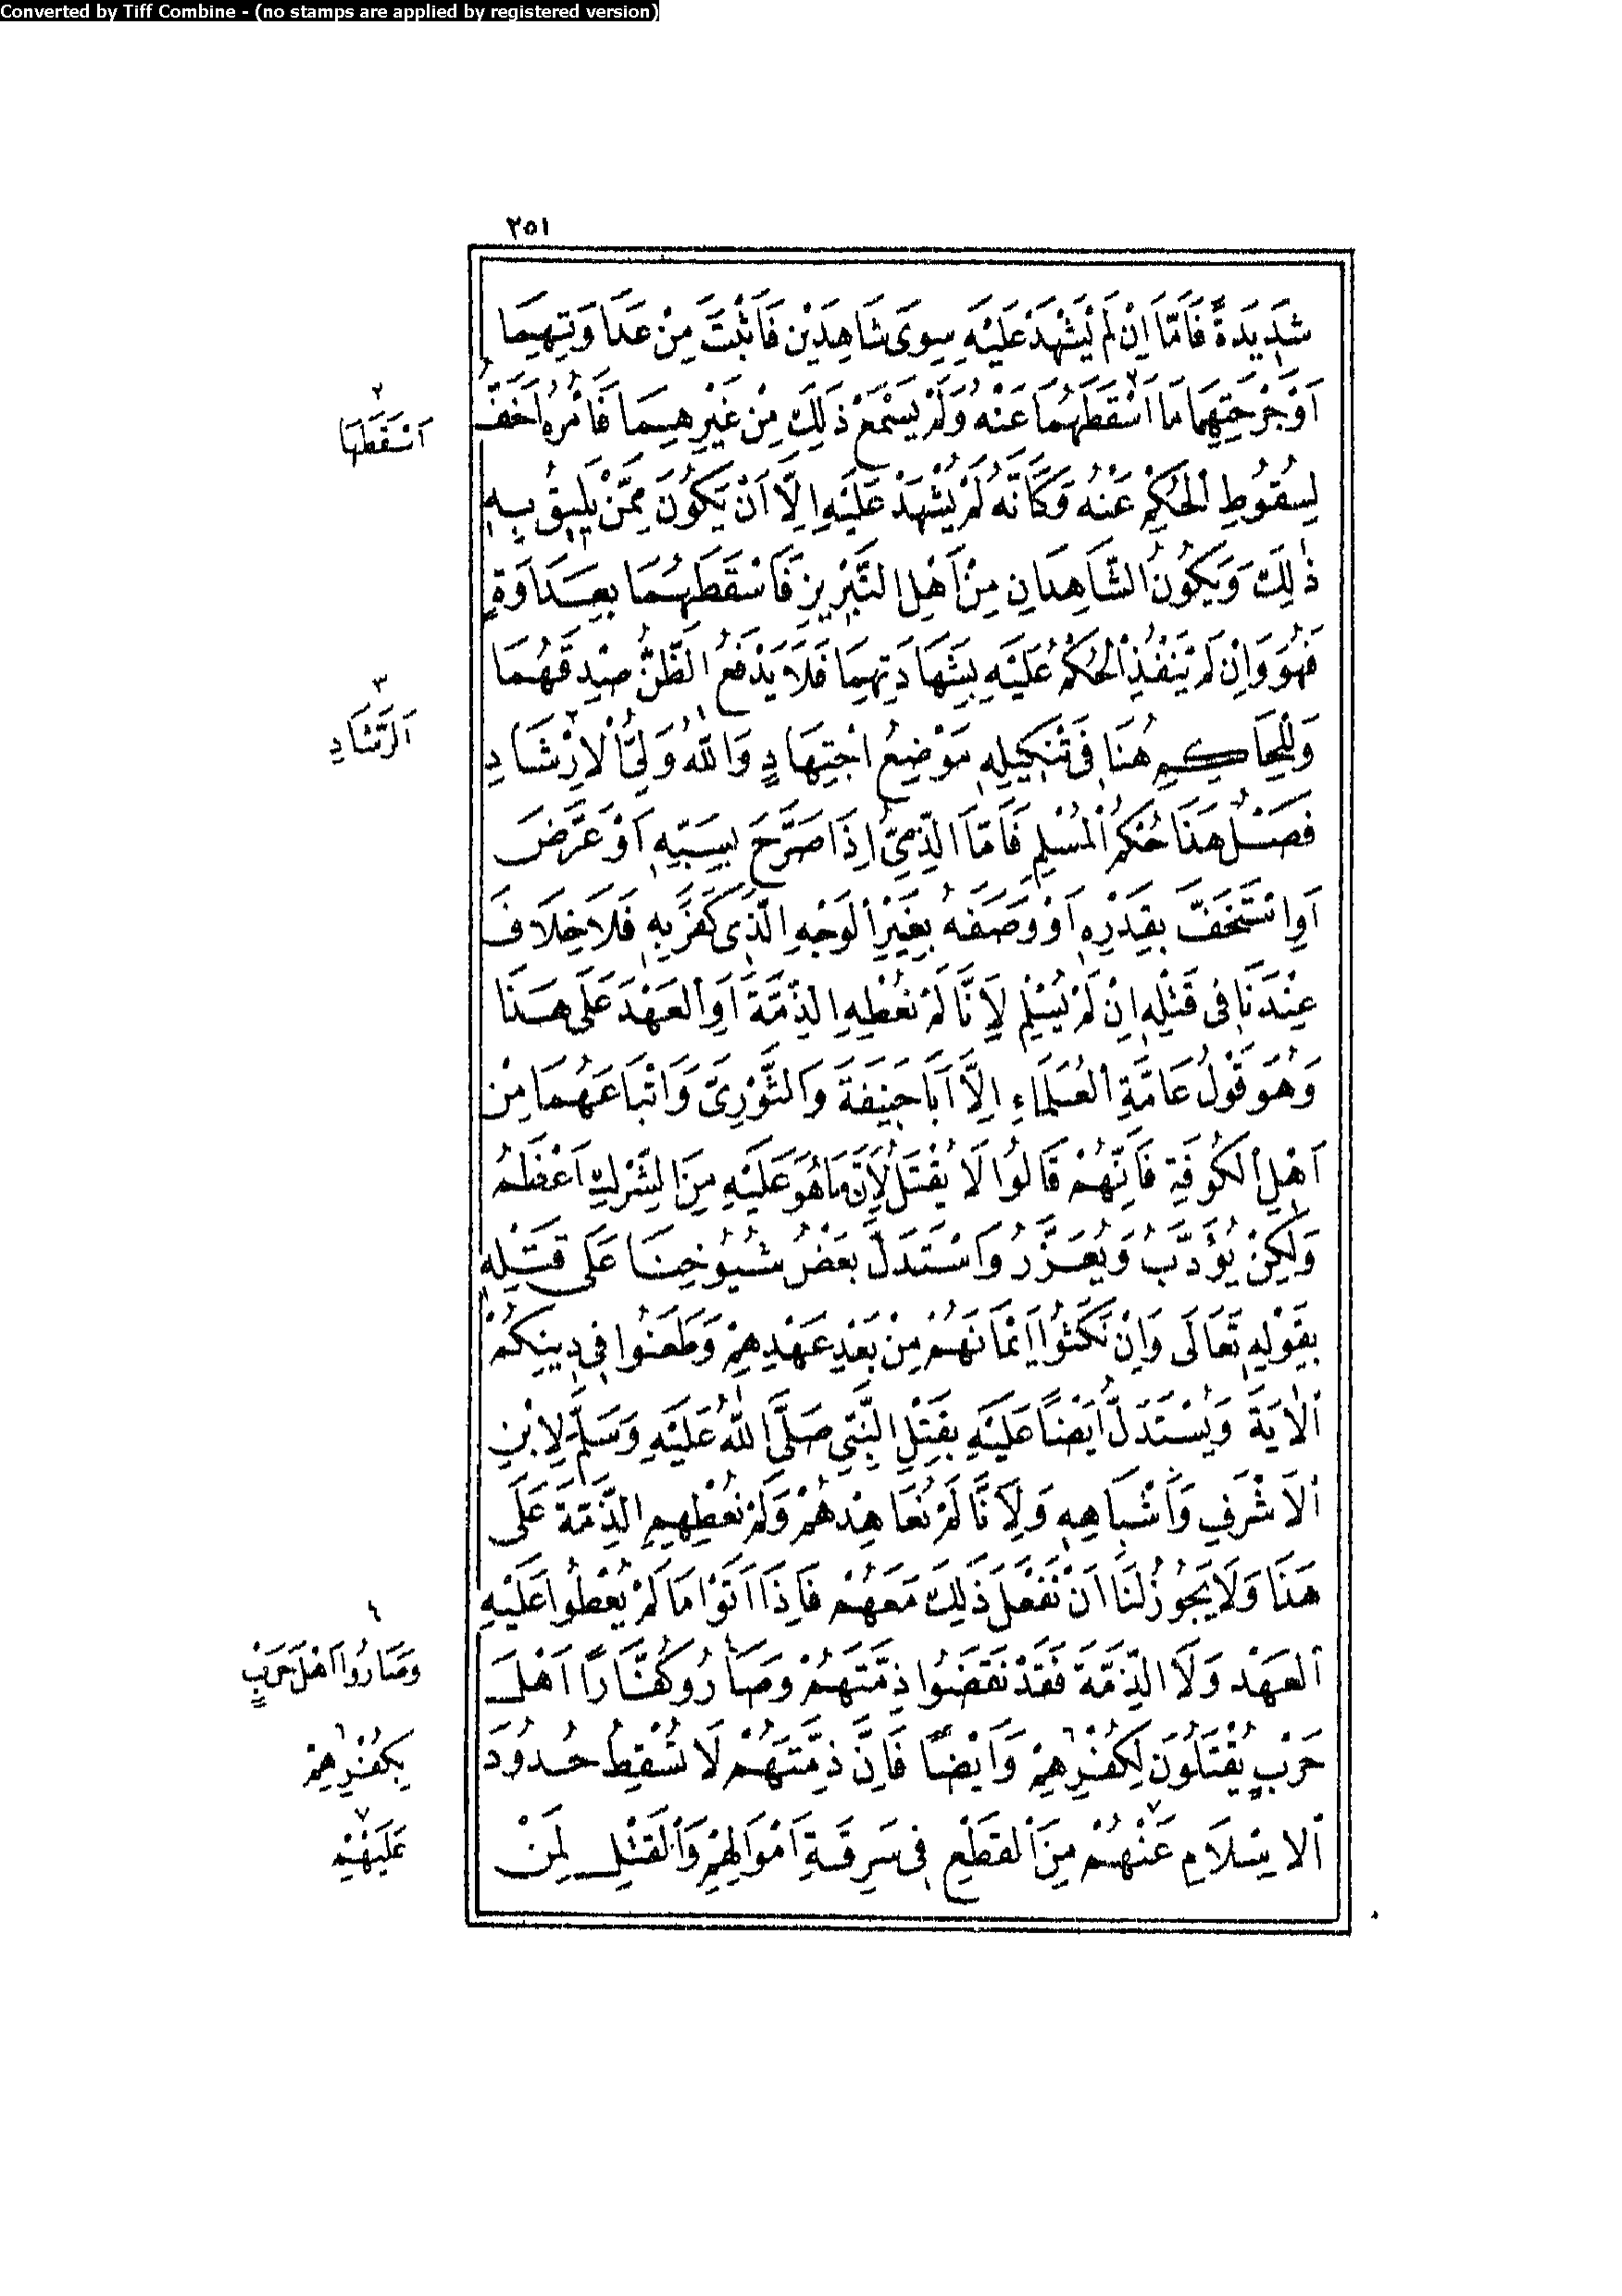 Converted by Tiff Combine - (no stamps are applied by registered version)
٢٥١
شَدِيدَةً فَأَمَّا اِنْ لَمْ يَشْهَدْ عَلَيْهِ سِوَى شَاهِدَيْنِ فَأَثْبَتَ مِنْ عَدَاوَتِهِمَا
اَوْ جُرْحَتِهِمَا مَا اَسْقَطَهُمَا عَنْهُ وَلَمْ يَسْمَعْ ذَلِكَ مِنْ غَيْرِهِمَا فَأَمْرُهُ اَخَفُّ
لِسُقُوطِ الْحُكْمِ عَنْهُ وَكَأَنَّهُ لَمْ يُشْهَدْ عَلَيْهِ اِلَّا اَنْ يَكُونَ مِمَّنْ يَلِيقُ بِهِ
ذٰلِكَ وَيَكُونُ الشَّاهِدَانِ مِنْ اَهْلِ التَّبْرِيزِ فَاَسْقَطَهُمَا بِعَدَاوَةٍ
فَهُوَ وَاِنْ لَمْ يَنْفُذِ الْحُكْمُ عَلَيْهِ بِشَهَادَتِهِمَا فَلَا يَدْفَعُ الظَّنُّ صِدْقَهُمَا
وَلِلْحَاكِمِ هُنَا فِى تَنْكِيلِهِ مَوْضِعُ اجْتِهَادٍ وَاللّٰهُ وَلِىُّ الْاِرْشَادِ
فَصْلٌ هَذَا حُكْمُ الْمُسْلِمِ فَأَمَّا الذِّمِّىُّ اِذَا صَرَّحَ بِسَبِّهِ اَوْ عَرَّضَ
اَوِ اسْتَخَفَّ بِقَدْرِهِ اَوْ وَصَفَهُ بِغَيْرِ الْوَجْهِ الَّذِى كَفَرَ بِهِ فَلَا خِلَافَ
عِنْدَنَا فِى قَتْلِهِ اِنْ لَمْ يُسْلِمْ لِاَنَّا لَمْ نُعْطِهِ الذِّمَّةَ اَوِ الْعَهْدَ عَلَى هَذَا
وَهُوَ قَوْلُ عَامَّةِ الْعُلَمَاءِ اِلَّا اَبَا حَنِيفَةَ وَالثَّوْرِىَّ وَاَتْبَاعَهُمَا مِنْ
اَهْلِ الْكُوفَةِ فَاِنَّهُمْ قَالُوا لَا يُقْتَلُ لِاَنَّ مَا هُوَ عَلَيْهِ مِنَ الشِّرْكِ اَعْظَمُ
وَلٰكِنْ يُؤَدَّبُ وَيُعَزَّرُ وَاسْتَدَلَّ بَعْضُ شُيُوخِنَا عَلَى قَتْلِهِ
بِقَوْلِهِ تَعَالَى وَاِنْ نَكَثُوا اَيْمَانَهُمْ مِنْ بَعْدِ عَهْدِهِمْ وَطَعَنُوا فِى دِينِكُمْ
الْاٰيَةَ وَيُسْتَدَلُّ اَيْضًا عَلَيْهِ بِقَتْلِ النَّبِىِّ صَلَّى اللّٰهُ عَلَيْهِ وَسَلَّمَ لِابْنِ
الْاَشْرَفِ وَاَشْبَاهِهِ وَلِاَنَّا لَمْ نُعَاهِدْهُمْ وَلَمْ نُعْطِهِمِ الذِّمَّةَ عَلَى
هَذَا وَلَا يَجُوزُ لَنَا اَنْ نَفْعَلَ ذَلِكَ مَعَهُمْ فَاِذَا اَتَوْا مَا لَمْ يُعْطَوْا عَلَيْهِ
الْعَهْدَ وَلَا الذِّمَّةَ فَقَدْ نَقَضُوا ذِمَّتَهُمْ وَصَارُوا كُفَّارًا اَهْلَ
حَرْبٍ يُقْتَلُونَ لِكُفْرِهِمْ وَاَيْضًا فَاِنَّ ذِمَّتَهُمْ لَا تُسْقِطُ حُدُودَ
الْاِسْلَامِ عَنْهُمْ مِنَ الْقَطْعِ فِى سَرِقَةِ اَمْوَالِهِمْ وَالْقَتْلِ لِمَنْ
٢
اَسْقَطَهَا
٣
الرَّشَادِ
٤
وَصَارُوا اَهْلَ حَرْبٍ
٦
بِكُفْرِهِمْ
٧
عَلَيْهِمْ